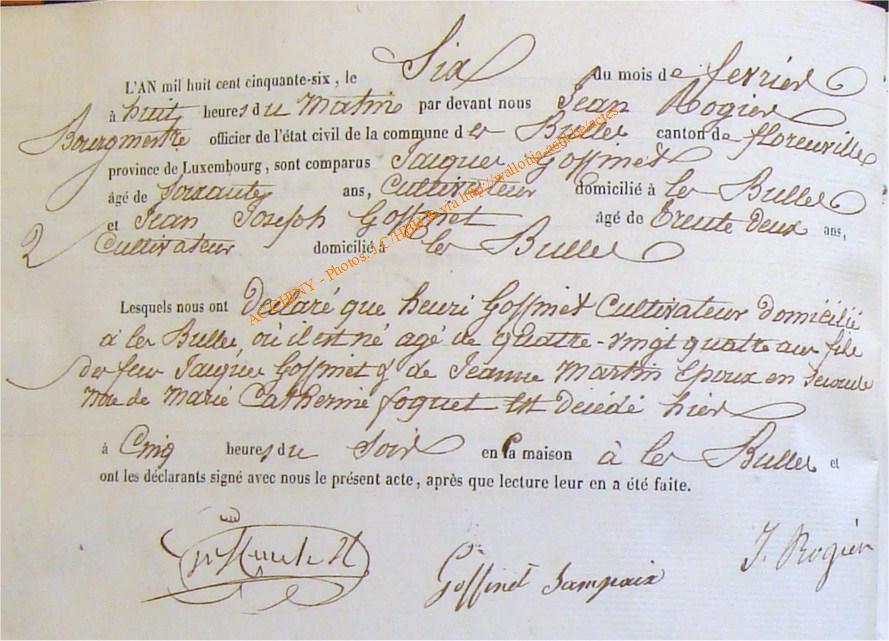 L'AN mil huit cent cinquante-six, le Six du mois de fevrier
à huit heures du Matin par devant nous Jean Rogier
Bourgmestre officier de l'état civil de la commune d es Bulles canton de florenville
province de Luxembourg, sont comparus Jacques Goffinet
âgé de Soixante ans, Cultivateur domicilié à les Bulles
et Jean Joseph Goffinet âgé de trente deux ans,
2 Cultivateur domicilié à les Bulles
Lesquels nous ont Declaré que henri Goffinet Cultivateur domicilié
à les Bulles où il est né agé de quatre-vingt quatre ans fils
de feu Jacques Goffinet & de Jeanne Martin Epoux en seconde
de Marie Catherine foquet Est Décédé hier
à Cinq heures du Soir en la maison à les Bulles et
ont les déclarants signé avec nous le présent acte, après que lecture leur en a été faite.
Goffinet Sampaix
J. Rogier